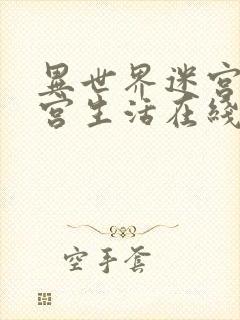 異世界迷宮
宮生活在綫
空手套